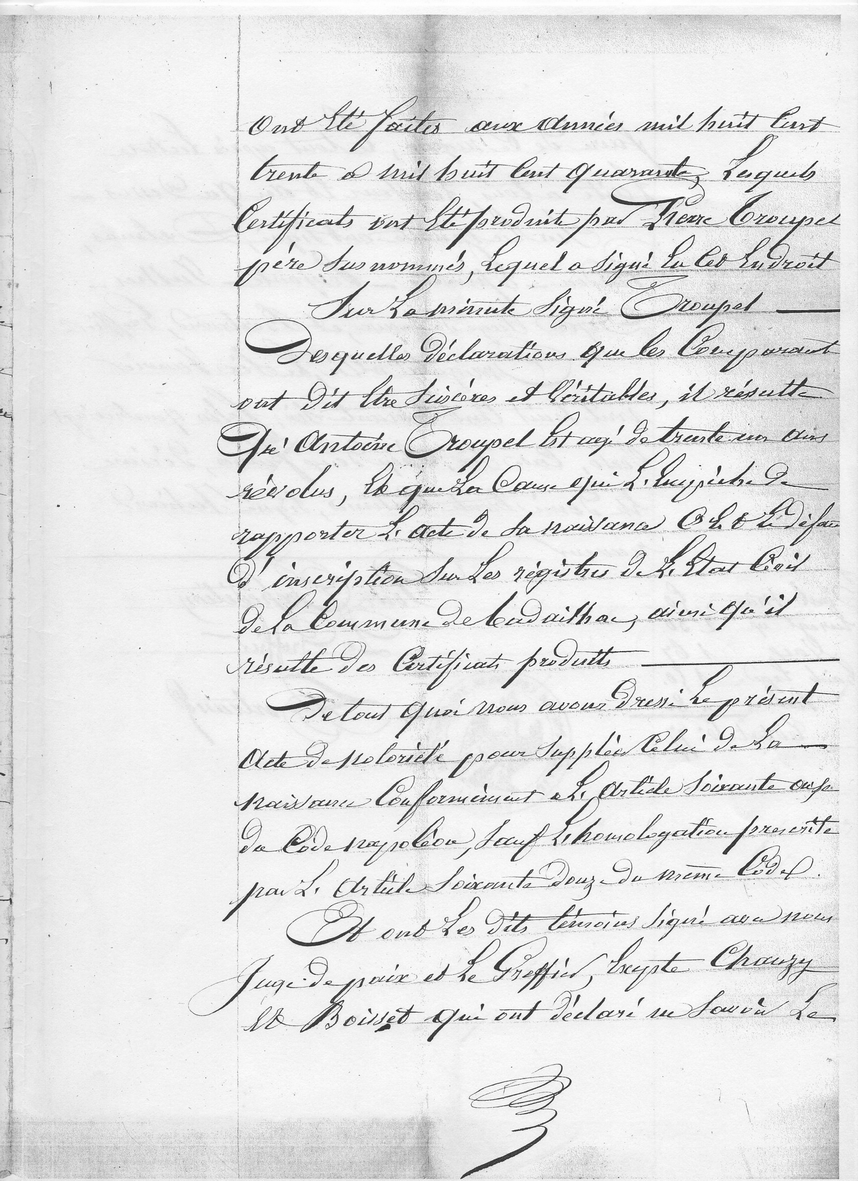 ont été faites aux années mil huit cent
trente a mil huit cent quarante, Lesquels
Certificats ont été produits par Pierre Troupel
père susnommés, Lequel a signé La Cet Endroit
Sur La minute Signé Troupel
Desquelles déclarations que les Comparant
ont dit être Sincères et Véritables, il résulte
Que Antoine Troupel Est agé de trente un ans
révolus, Et que La Cause qui L'Empêche de
rapporter L'acte de Sa naissance C'Est Le défau
d'inscription Sur Les régistres de L'Etat Civil
de La Commune de Cudailhac, ainsi qu'il
résulte des Certificats produits
De tout quoi nous avons Dressé Le présent
acte de notoriété pour Suppléer Celui de La
naissance Conformément a L'Article Soixante onze
du Code napoléon, Sauf L'homologation prescrite
par L'Article Soixante douze du même Code.
Et ont Les dits témoins Signé avec nous
Juge de paix et Le Greffier, Excepté Chauzy
Et Boisset qui ont déclaré ne Savoir Le